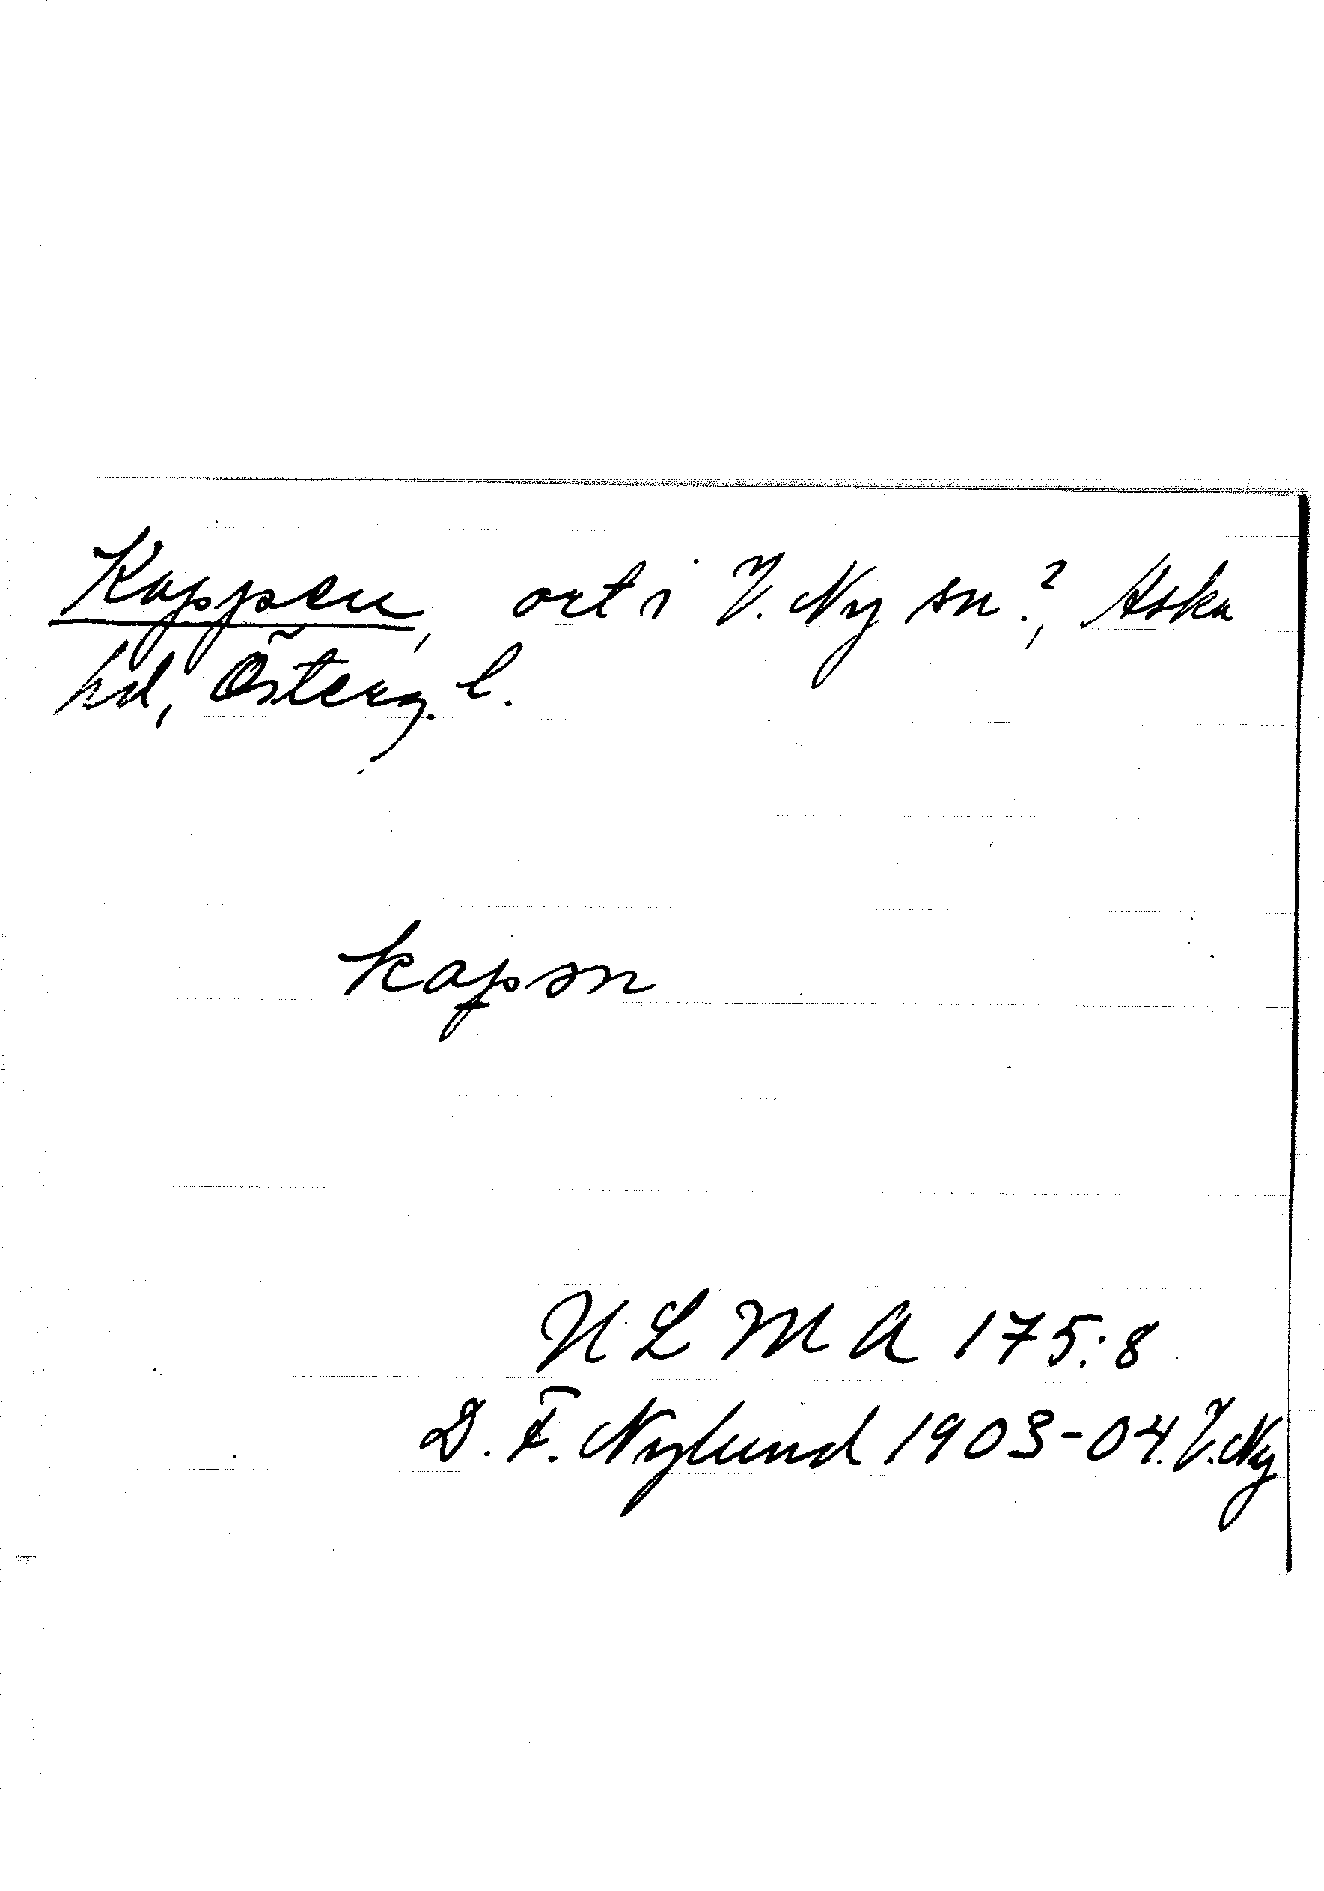 Kappen, ort i V. Ny sn?, Aska
hd, Österg. l.
kapən
ULMA 175:8
D. F. Nylund 1903-04. V. Ny